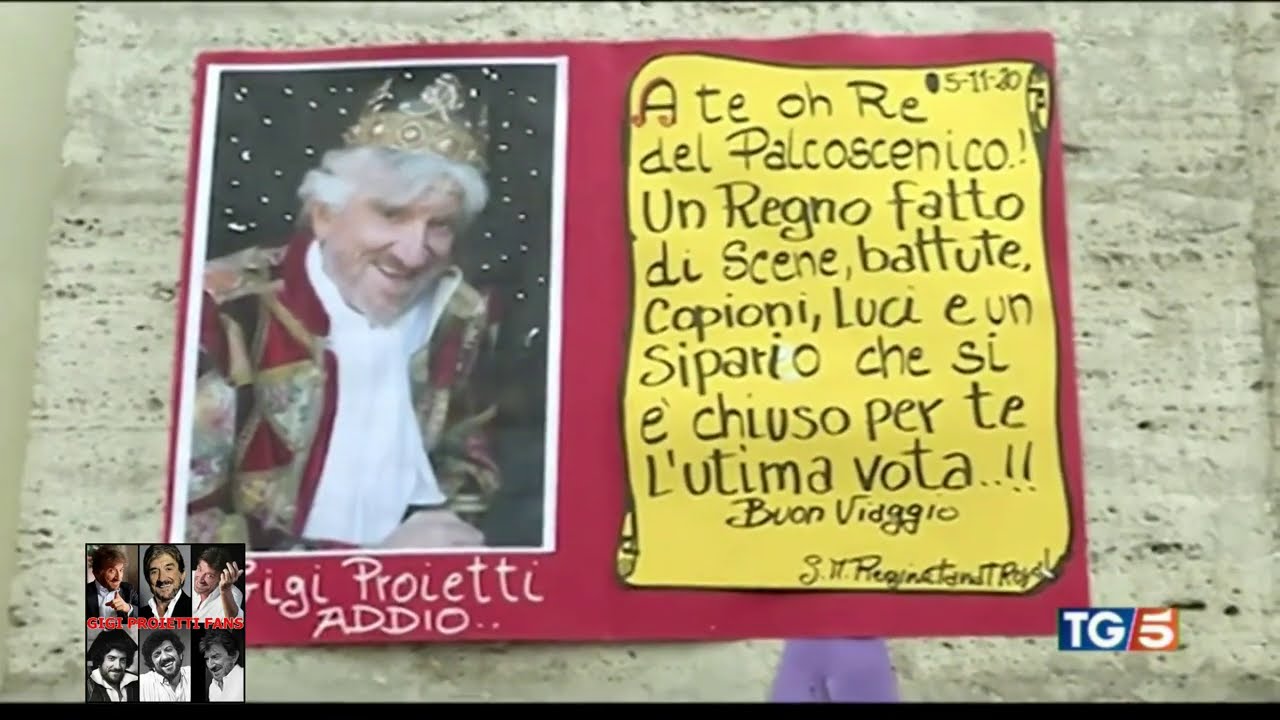 5-11-20
A te oh Re
del Palcoscenico.!
Un Regno fatto
di Scene, battute,
Copioni, Luci e un
Sipario che si
è chiuso per te
L'utima vota..!!
Buon Viaggio
Gigi Proietti
ADDIO..
GIGI PROIETTI FANS
TG5